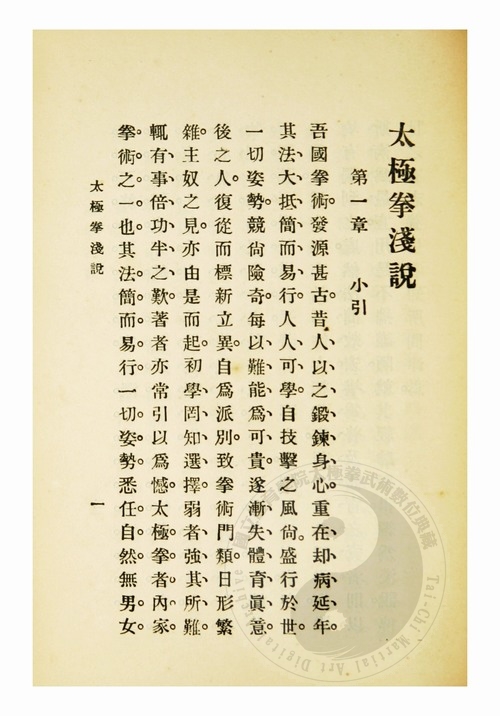 太極拳淺說
第一章 小引
吾國拳術。發源甚古。昔人以之鍛鍊身心。重在却病延年。
其法大抵簡而易行。人人可學。自技擊之風尙。盛行於世。
一切姿勢。競尙險奇。每以難能爲可貴。遂漸失體育眞意。
後之人。復從而標新立異。自爲派別。致拳術門類。日形繁
雜。主奴之見。亦由是而起。初學罔知選擇。弱者強其所難。
輒有事倍功半之歎。著者亦常引以爲憾。太極拳者。內家
拳術之一也。其法簡而易行。一切姿勢。悉任自然。無男女
太極拳淺說
一
國立臺灣體育學院太極拳武術數位典藏
Tai-Chi Martial Art Digital Archives